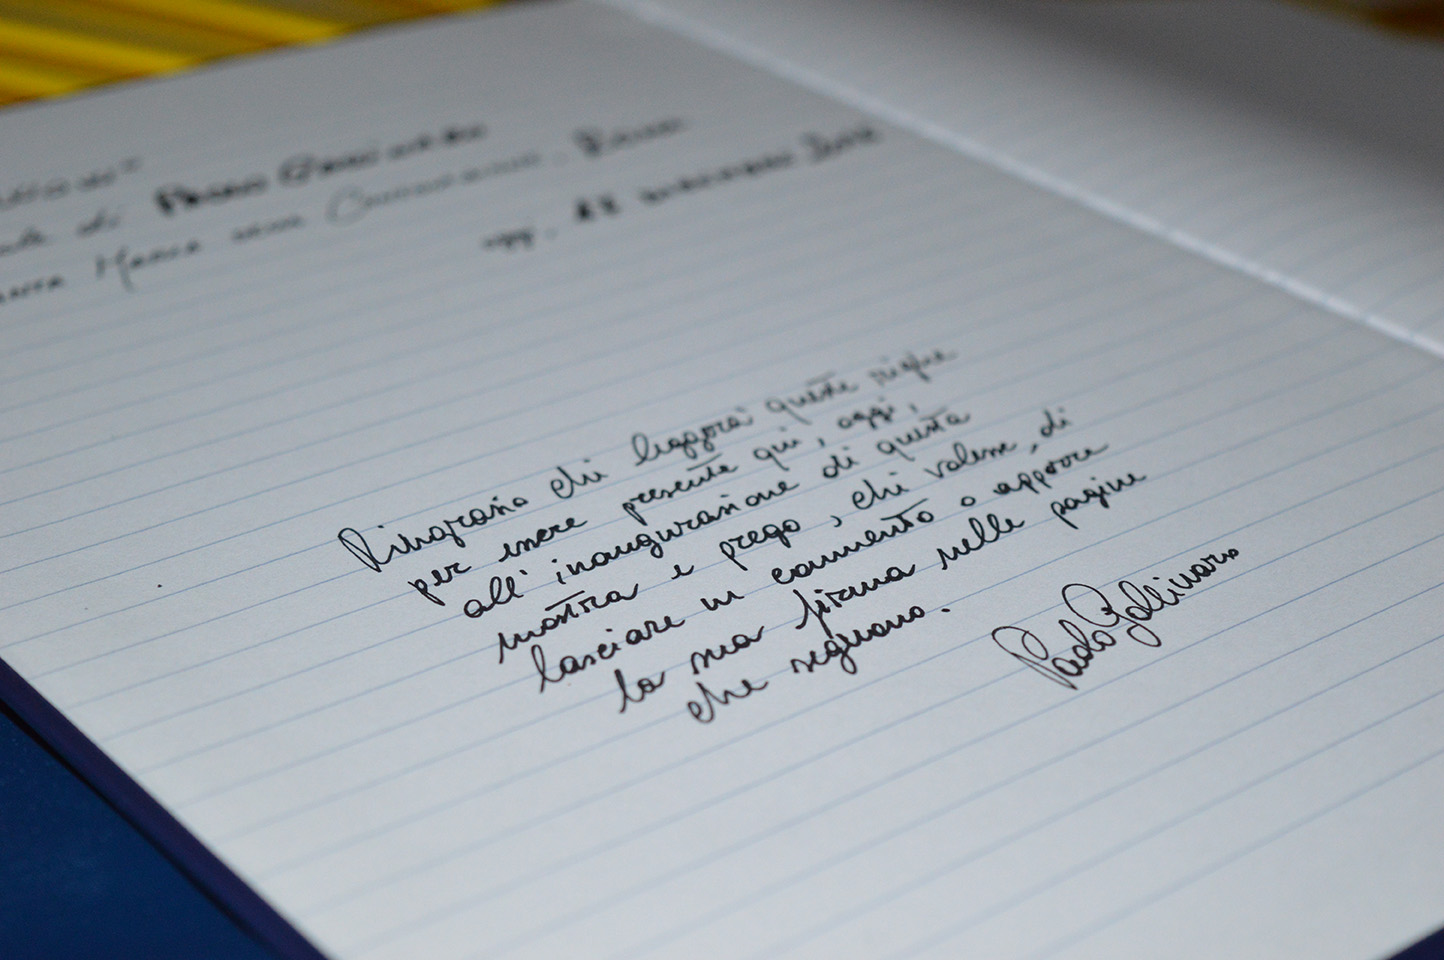 di Paolo Gallinaro
Santa Maria
oggi,
Ringrazio chi leggerà queste righe
per essere presente qui, oggi,
all'inaugurazione di questa
mostra e prego, chi volesse, di
lasciare un commento o apporre
la sua firma nelle pagine
che seguono.
Paolo Gallinaro